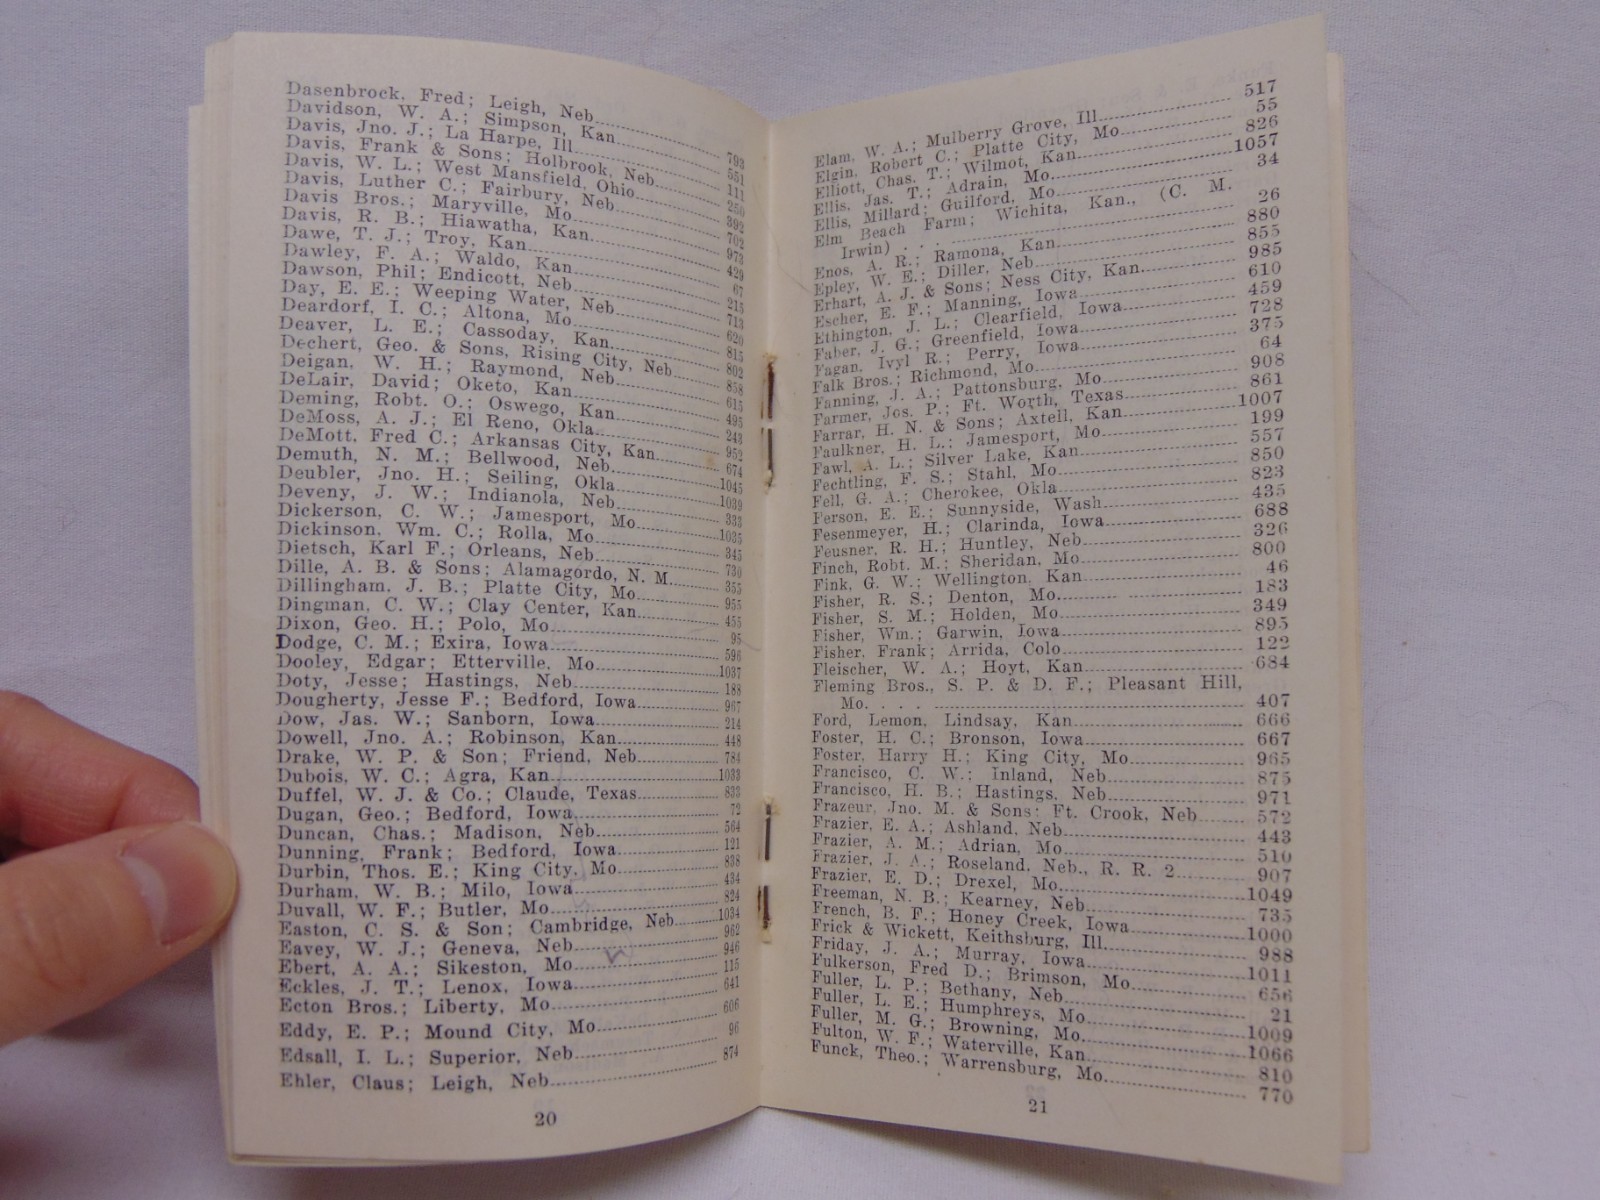 Dasenbrock, Fred; Leigh, Neb. 793
Davidson, W. A.; Simpson, Kan. 551
Davis, Jno. J.; La Harpe, Ill. 111
Davis, Frank & Sons; Holbrook, Neb. 250
Davis, W. L.; West Mansfield, Ohio 392
Davis, Luther C.; Fairbury, Neb. 702
Davis Bros.; Maryville, Mo. 973
Davis, R. B.; Hiawatha, Kan. 429
Dawe, T. J.; Troy, Kan. 67
Dawley, F. A.; Waldo, Kan. 215
Dawson, Phil; Endicott, Neb. 713
Day, E. E.; Weeping Water, Neb. 620
Deardorf, I. C.; Altona, Mo. 815
Deaver, L. E.; Cassoday, Kan. 802
Dechert, Geo. & Sons, Rising City, Neb. 858
Deigan, W. H.; Raymond, Neb. 615
DeLair, David; Oketo, Kan. 495
Deming, Robt. O.; Oswego, Kan. 243
DeMoss, A. J.; El Reno, Okla. 952
DeMott, Fred C.; Arkansas City, Kan. 674
Demuth, N. M.; Bellwood, Neb. 1045
Deubler, Jno. H.; Seiling, Okla. 1039
Deveny, J. W.; Indianola, Neb. 333
Dickerson, C. W.; Jamesport, Mo. 1035
Dickinson, Wm. C.; Rolla, Mo. 345
Dietsch, Karl F.; Orleans, Neb. 730
Dille, A. B. & Sons; Alamagordo, N. M. 355
Dillingham, J. B.; Platte City, Mo. 955
Dingman, C. W.; Clay Center, Kan. 455
Dixon, Geo. H.; Polo, Mo. 95
Dodge, C. M.; Exira, Iowa 596
Dooley, Edgar; Etterville, Mo. 1037
Doty, Jesse; Hastings, Neb. 188
Dougherty, Jesse F.; Bedford, Iowa 967
Dow, Jas. W.; Sanborn, Iowa 214
Dowell, Jno. A.; Robinson, Kan. 448
Drake, W. P. & Son; Friend, Neb. 784
Dubois, W. C.; Agra, Kan. 1033
Duffel, W. J. & Co.; Claude, Texas 833
Dugan, Geo.; Bedford, Iowa 72
Duncan, Chas.; Madison, Neb. 564
Dunning, Frank; Bedford, Iowa 121
Durbin, Thos. E.; King City, Mo. 838
Durham, W. B.; Milo, Iowa 434
Duvall, W. F.; Butler, Mo. 824
Easton, C. S. & Son; Cambridge, Neb. 1034
Eavey, W. J.; Geneva, Neb. 962
Ebert, A. A.; Sikeston, Mo. 946
Eckles, J. T.; Lenox, Iowa 115
Ecton Bros.; Liberty, Mo. 641
Eddy, E. P.; Mound City, Mo. 606
Edsall, I. L.; Superior, Neb. 96
Ehler, Claus; Leigh, Neb. 874
20
Elam, W. A.; Mulberry Grove, Ill. 517
Elgin, Robert C.; Platte City, Mo. 55
Elliott, Chas. T.; Wilmot, Kan. 826
Ellis, Jas. T.; Adrain, Mo. 1057
Ellis, Millard; Guilford, Mo. 34
Elm Beach Farm; Wichita, Kan., (C. M.
Irwin) . . . 26
Enos, A. R.; Ramona, Kan. 880
Epley, W. E.; Diller, Neb. 855
Erhart, A. J. & Sons; Ness City, Kan. 985
Escher, E. F.; Manning, Iowa 610
Ethington, J. L.; Clearfield, Iowa 459
Faber, J. G.; Greenfield, Iowa 728
Fagan, Ivyl R.; Perry, Iowa 375
Falk Bros.; Richmond, Mo. 64
Fanning, J. A.; Pattonsburg, Mo. 908
Farmer, Jos. P.; Ft. Worth, Texas 861
Farrar, H. N. & Sons; Axtell, Kan. 1007
Faulkner, H. L.; Jamesport, Mo. 199
Fawl, A. L.; Silver Lake, Kan. 557
Fechtling, F. S.; Stahl, Mo. 850
Fell, G. A.; Cherokee, Okla. 823
Ferson, E. E.; Sunnyside, Wash. 435
Fesenmeyer, H.; Clarinda, Iowa 688
Feusner, R. H.; Huntley, Neb. 326
Finch, Robt. M.; Sheridan, Mo. 800
Fink, G. W.; Wellington, Kan. 46
Fisher, R. S.; Denton, Mo. 183
Fisher, S. M.; Holden, Mo. 349
Fisher, Wm.; Garwin, Iowa 895
Fisher, Frank; Arrida, Colo. 122
Fleischer, W. A.; Hoyt, Kan. 684
Fleming Bros., S. P. & D. F.; Pleasant Hill,
Mo. . . . 407
Ford, Lemon, Lindsay, Kan. 666
Foster, H. C.; Bronson, Iowa 667
Foster, Harry H.; King City, Mo. 965
Francisco, C. W.; Inland, Neb. 875
Francisco, H. B.; Hastings, Neb. 971
Frazeur, Jno. M. & Sons; Ft. Crook, Neb. 572
Frazier, E. A.; Ashland, Neb. 443
Frazier, A. M.; Adrian, Mo. 510
Frazier, J. A.; Roseland, Neb., R. R. 2 907
Frazier, E. D.; Drexel, Mo. 1049
Freeman, N. B.; Kearney, Neb. 735
French, B. F.; Honey Creek, Iowa 1000
Frick & Wickett, Keithsburg, Ill. 988
Friday, J. A.; Murray, Iowa 1011
Fulkerson, Fred D.; Brimson, Mo. 656
Fuller, L. P.; Bethany, Neb. 21
Fuller, L. E.; Humphreys, Mo. 1009
Fuller, M. G.; Browning, Mo. 1066
Fulton, W. F.; Waterville, Kan. 810
Funck, Theo.; Warrensburg, Mo. 770
21